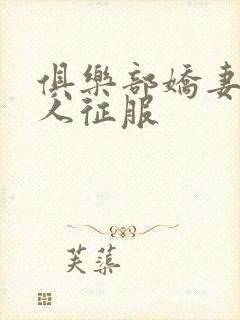 俱樂部嬌妻
人征服
芙蕖